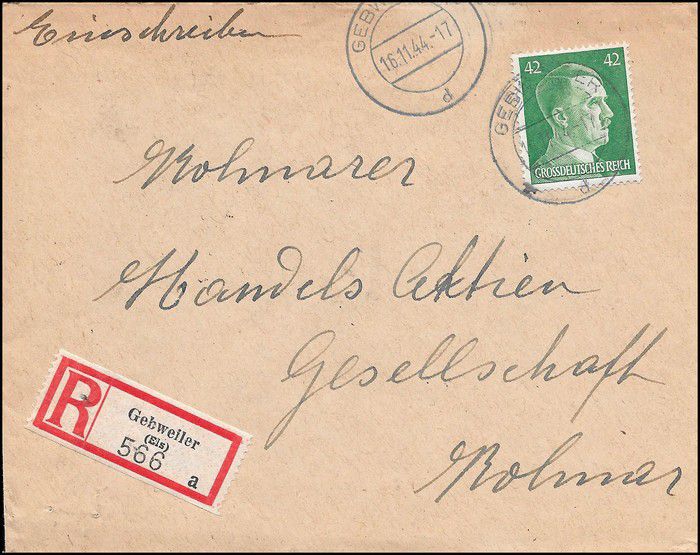 Einschreiben
GEBW
16.11.44.-17
d
42 42
GEBWEILER
d
GROSSDEUTSCHES REICH
Kolmarer
Handels Aktien
Gesellschaft
Kolmar
R
Gebweiler
(Els)
566
a